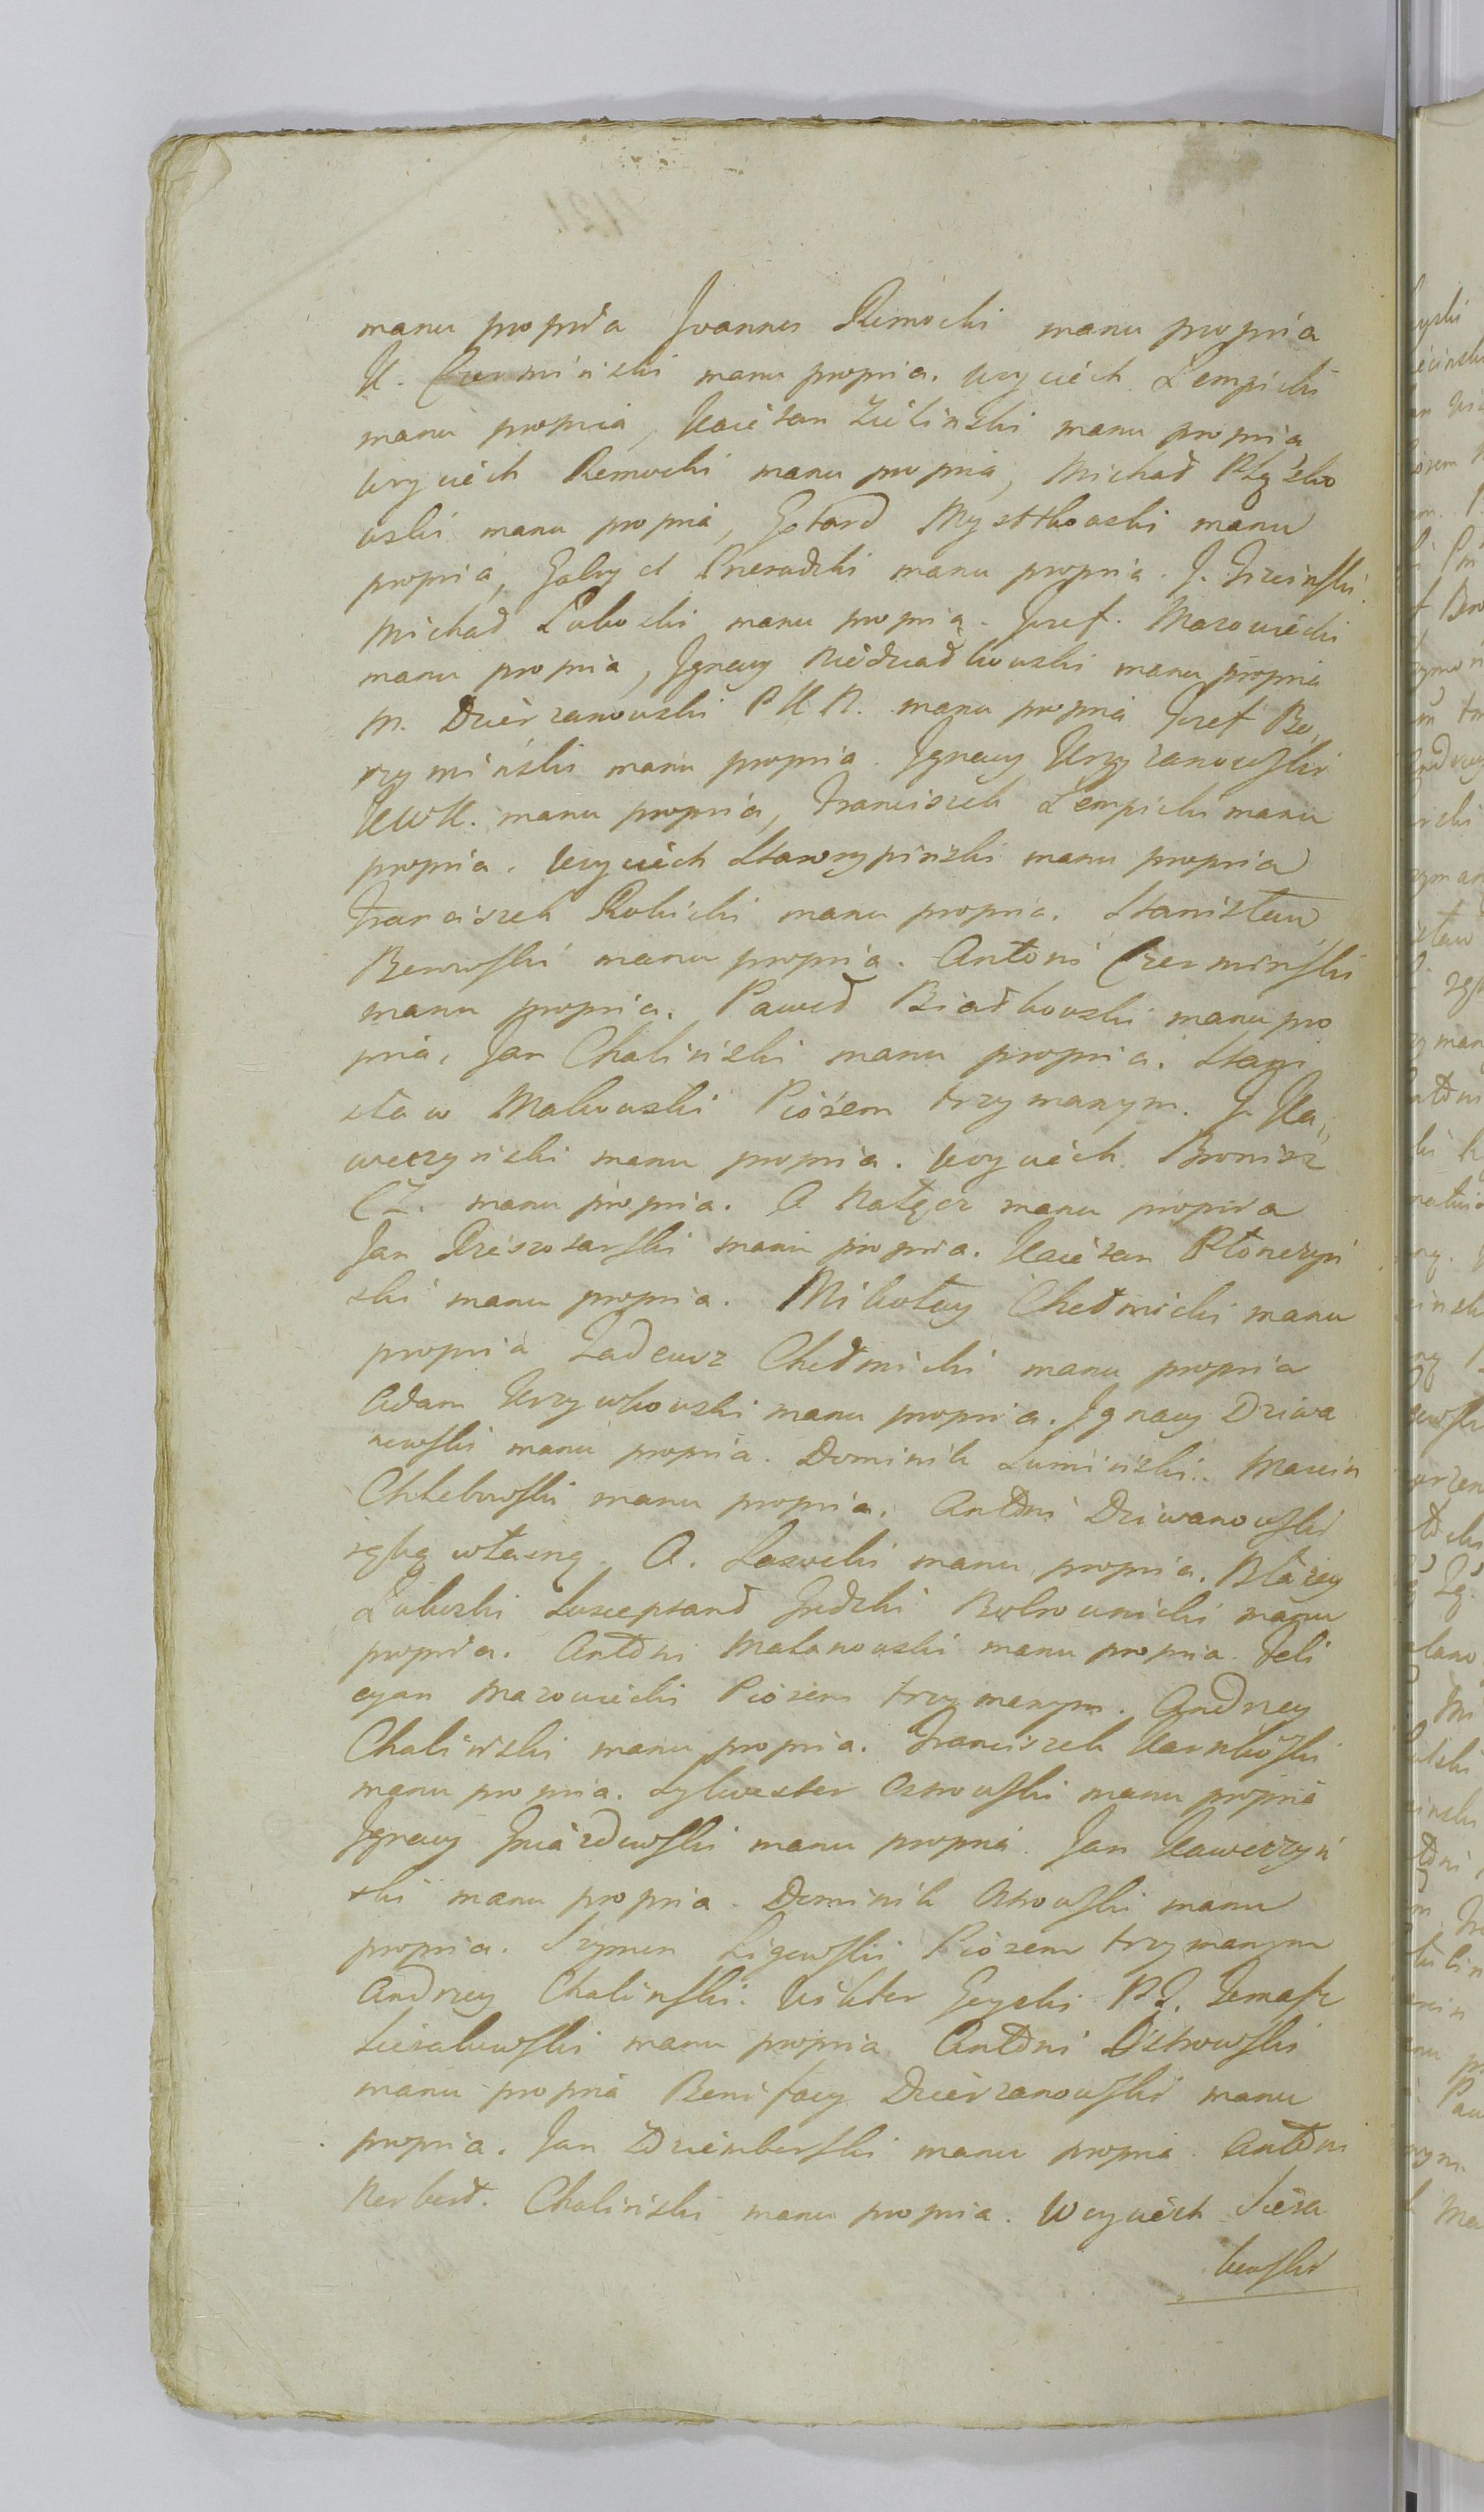 manu propria Joannes Rĕmocki manu propria
K. Czermiński manu propria. Woyciéch Lempicki
manu propria, Kaiétan Zieliński manu propria
Woyciéch Remocki manu propria, Michał Płą​zko
wski manu propria, Gotard Mysttkowski manu
propria, Gabryel Sieradzki manu propria. J.
Michał Łuboski manu propria. Jozef. Mazowiécki
manu propria, Jgnacy Niédziałkowski manu propria
M. Dziérzanowski P K R. manu propria Jozef Bo,
rzymiński manu propria. Jgnacy Krzyżanowski
KWK. manu propria, Franciszek Lempicki manu
propria. Woyciéch Skarzypiński manu propria
Franciszek Robicki manu propria. Stanisław
Borowski manu propria. Antoni Czerminski
manu propria. Paweł Białkowski manu pro
pria, Jan Chaliński manu propria. Stani
sław Makowski Piórem trzymanym. J. Ka,,
weczyński manu propria. Woyciéch Bronisz
CZ. manu propria. A Nałęcz manu propria
Jan manu propria. Kaiétan Płonczyń
ski manu propria. Mikołay Chełmicki manu
propria Tadeusz Chełmicki manu propria
Adam Krzywkowski manu propria. Jgnacy Dziwa
nowski manu propria. Dominik Łumiński. Marcin
Chlebowski manu propria. Antoni Dziwanowski
ręką własną. A. Lasocki manu propria. Błażey
Łuboski manu
propria. Antoni Małanowski manu propria. Feli
cyan Mazowiécki Piórem trzymanym. Andrzey
Chaliński manu propria. Franciszek Karnkoski
manu propria. Sylwester Ostrowski manu propria
Jgnacy Gniazdowski manu propria. Jan Kaweczyń
ski manu propria. Dominik Ostrowski manu
propria. Szymon Ligowski Piórem trzymanym
Andrzey Chalinski. Wiktor Geyski P.Z. Tomasz
Sierakowski manu propria Antoni Ostrowski
manu propria Bonifacy Dziérzanowski manu
propria. Jan Zdziémborski manu propria. Antoni
Norbert. Chaliński manu propria. Woyciéch Siera
kowski